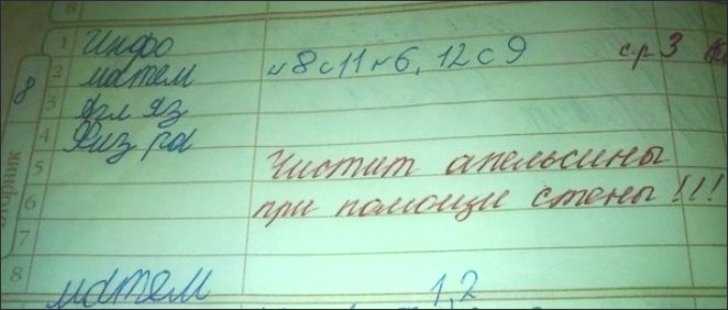 8
1 Инфо
2 матем н 8 с 11 н 6, 12 с 9 ср 3
3 Анг яз
4 Физ ра
5 Чистит апельсины
6 при помощи стены !!!
7
8 матем 1,2
8
вторник